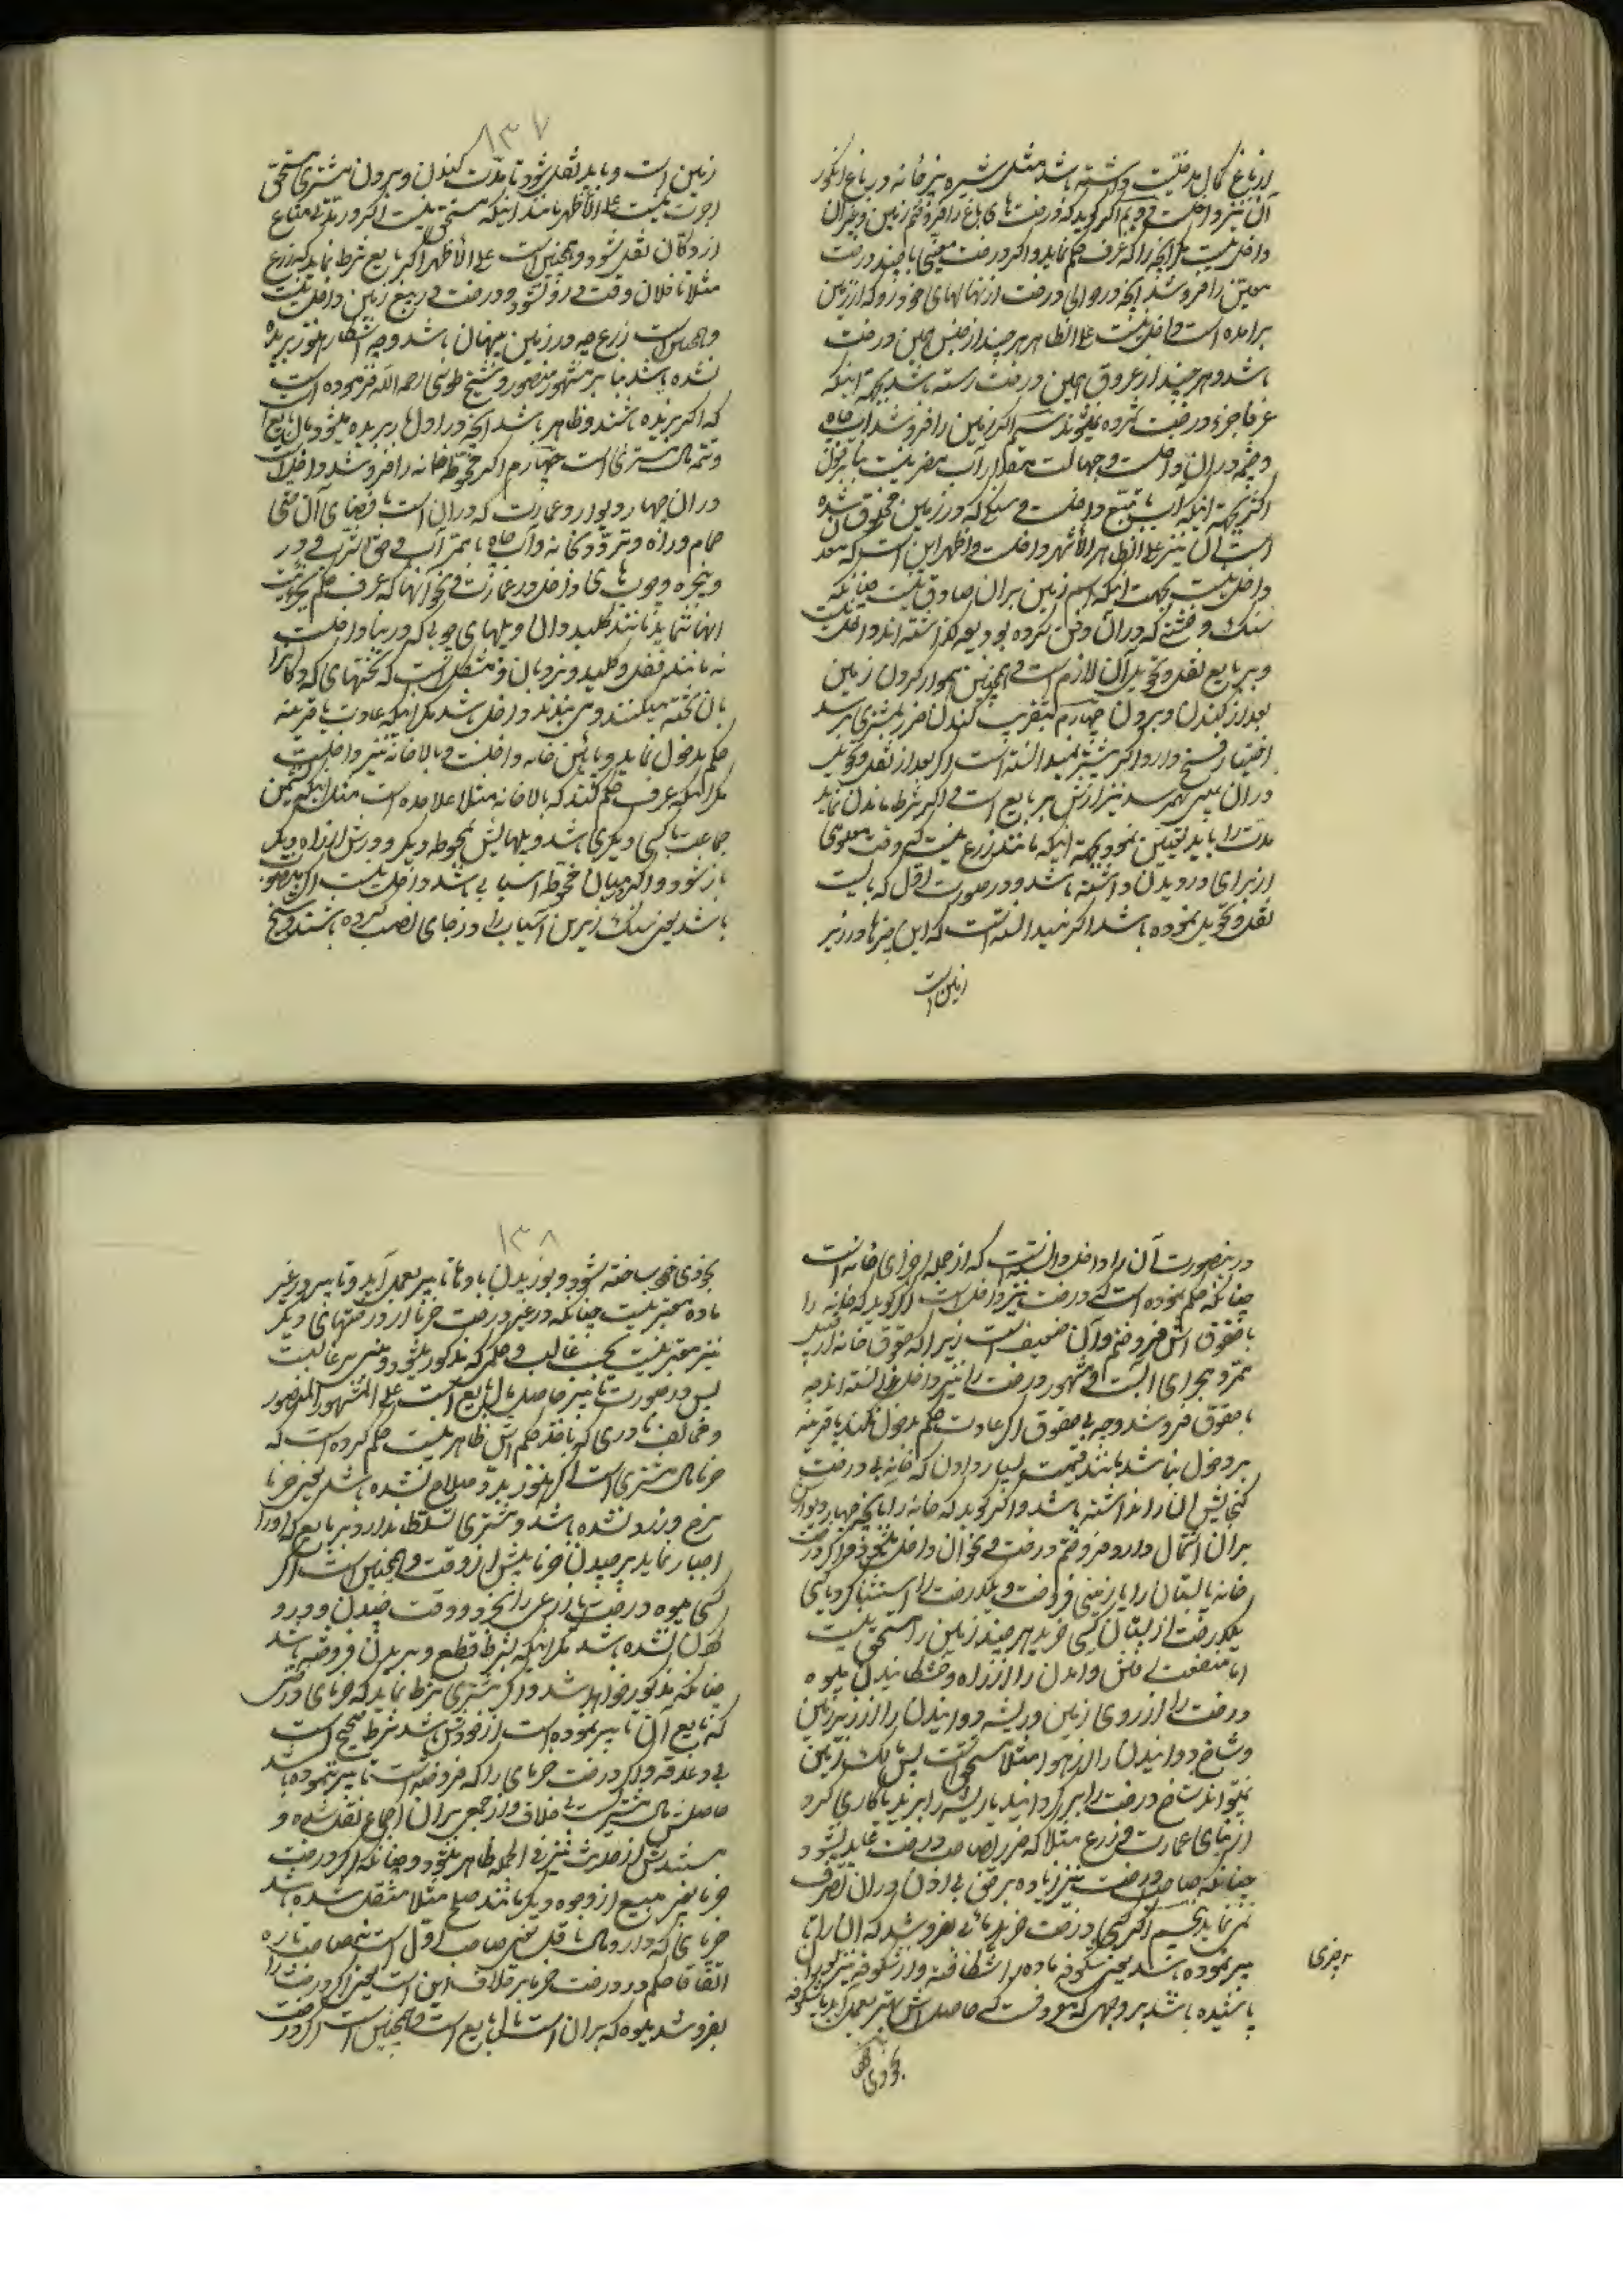 از باغ کمال مدخلیت داشته باشد مثل شیره پزخانه در باغ انکور
آن نیز داخلست دویم اکر کوید که درخت های باغ را فروختم زمین و غیر آن
داخل نیست مکر آنچه را که عرف حکم نماید و اکر درخت معینی یا چند درخت
معین را فروشد آنچه در حوالی درخت از نهالهای خود رو که از زمین
برامده است داخل نیست علی الظاهر هر چند از جنس همین درخت
باشد و هر چند از عروق همین درخت رسته باشد بجهة اینکه
عرفا جزء درخت شمرده نمیشوند سیم اکر زمین را فروشد آب چاه
و چشمه در ان داخلست و جهالت مقدار آب مضر نیست بنا بر قول
اکثر بجهة اینکه آب تابع داخلست و سنکی که در زمین مخلوق شده
است آن نیز علی الظاهر الأشهر داخلست و اظهر این است که معدن
داخل نیست بجهت اینکه اسم زمین بران صادق نیست چنانکه
سنک و خشتی که در آن دفن کرده بودیعه کذاشته اند داخل نیست
و بر بایع نقل و تحویل آن لازم است و همچنین هموار کردن زمین
بعد از کندن و بردن چهارم بتقریب کندن ضرر بمشتری رسد
اختیار فسخ دارد اکر پیشتر نمیدانسته است و اکر بعد از نقل و تحویل
در ان عیبی بهمرسد نیز ارش بر بایع است و اکر شرط ماندن نماید
مدت را باید تعیین نمود بجهة اینکه مانند زرع نیست که وقت معلومی
از برای درویدن داشته باشد و در صورت اول که بایست
نقل و تحویل نموده باشد اکر نمیدانسته است که این چیزها در زیر
زمین است
۱۳۷
زمین است و باید نقل شود تا مدت کندن و بردن مشتری مستحق
اجرت نیست علی الأظهر مانند اینکه مستحق نیست اکر در مدتی متاع
از دکان نقل شود و همچنین است علی الأظهر اکر بایع شرط نماید که زرع
مثلا تا فلان وقت درو نشود و درخت در بیع زمین داخل نیست
و همچنین است زرع چه در زمین پنهان باشد و چه آشکار هنوز بریده
نشده باشد بنا بر مشهور منصور و شیخ طوسی رحمه الله فرموده است
که اکر بریده باشند و ظاهر باشد آنچه در اول بار بریده میشود مال بایع
و تتمه مال مشتری است چهارم اکر محوطه خانه را فروشد داخل است
در ان چهار دیوار و عمارت که در ان است با فضای آن حتی
حمام در راه و تردد و کانه و آب چاه با ممر آب و حق الشرب و در
و پنجره و چوب های داخل در عمارت و نحو آنها که عرف حکم بجزئیت
انها نماید مانند کلیدوان و پلهای چوبی که در بنا داخلست
نه مانند قفل و کلید و نردبان و مشکل است که تختهای که دکان را
بان تخته میکنند و می بندند داخل باشد مکر اینکه عادت یا قرینه
حکم بدخول نماید و پائین خانه داخلست و بالا خانه نیز داخلست
مکر اینکه عرف حکم کند که بالا خانه مثلا علاحده است مثل اینکه نشیمن
جماعت یا کسی دیکری باشد و پلهایش بمحوطه دیکر و درش از راه دیکر
باز شود و اکر در میان محوطه آسیابی باشد داخل نیست اکر منصوب
باشد یعنی سنک زیرین آسیاب را در جای نصب کرده باشند و شیخ
در اینصورت آن را داخل دانسته است که از جمله اجزای خانه است
چنانکه حکم نموده است که درخت نیز داخل است اکر کوید که خانه را
با حقوق اش فروختم و آن ضعیف است زیرا که حقوق خانه از قبیل
ممر و مجرای آبست و مشهور درخت را نیز داخل ندانسته اند چه
با حقوق فروشد و چه بی حقوق اکر عادت حکم بدخول نکند یا قرینه
بر دخول نباشد مانند قیمت بسیار دادن که خانه بی درخت
کنجایش ان را نداشته باشد و اکر کوید که خانه را با آنچه چهار دیوارش
بران اشتمال دارد فروختم درخت و نحو ان داخل میشود و اکر در
خانه یا بستان را یا زمینی فروخت و یکدرخت را استثنا کرد یا کسی
یکدرخت از بستان کسی خرید هر چند زمین را مستحق نیست
اما منفعت داخل شدن را از راه و خشکانیدن میوه
درخت را از روی زمین و ریشه دوانیدن را از زیر زمین
و شاخ دوانیدن را از هوا مثلا مستحق است پس مالک زمین
نمیتواند شاخ درخت را برکرداند یا ریشه را ببرد یا کاری کرد
از بنای عمارت و زرع مثلا که ضرر بصاحب درخت عاید شود
چنانکه صاحب درخت نیز زیاده بر حق بی اذن در ان تصرف
نمی نماید پنجم اکر کسی درخت خرمائی بفروشد که ان را تا
بیر نموده باشد یعنی شکوفه ماده را شکافته و از شکوفه نیز بران
پاشیده باشد بر وجهی که معروفست که حاصل اش بهتر بعمل آید یا شکوفه
چیزی
بخودی خود
۱۳۸
بخودی خود شکافته شود و بوزیدن باد تا تابیر بعمل آید و تابیر در غیر
ماده معتبر نیست چنانکه در غیر درخت خرما از درختهای دیکر
نیز معتبر نیست بحسب غالب و حکمی که مذکور میشود مبنی بر غالبست
پس در صورت تابیر حاصل مال بایع است علی المشهور المنصور
و مخالف نادری که ماخذ حکم اش ظاهر نیست حکم کرده است که
خرما مال مشتری است اکر هنوز بدو صلاح نشده باشد یعنی خرما
سرخ و زرد نشده باشد و مشتری تسلط ندارد بر بایع که او را
اجبار نماید بر چیدن خرما پیش از وقت و همچنین است اکر
کسی میوه درخت یا زرعی را بخرد و وقت چیدن و درو
کردن نشده باشد مکر اینکه بشرط قطع و بریدن فروخته باشد
چنانکه مذکور خواهد شد و اکر مشتری شرط نماید که خرمای درختی
که بایع آن تابیر نموده است از خودش باشد شرط صحیح است
بی دغدغه و اکر درخت خرمای را که فروخته است تابیر ننموده باشد
حاصلش مال مشتریست بی خلاف و از جمعی بران اجماع نقل شده و
مستندش از حدیث نیز فی الجمله ظاهر میشود و چنانکه اکر درخت
خرما بغیر مبیع از وجوه دیکر مانند صلح مثلا منتقل شده باشد
خرمای که دارد مال ناقل یعنی صاحب اول است نه صاحب تازه
اتفاقا حکم در درخت خرما بر خلاف این است یعنی اکر درخت را
بفروشد میوه که بران است مال بایع است و همچنین است اکر درخت